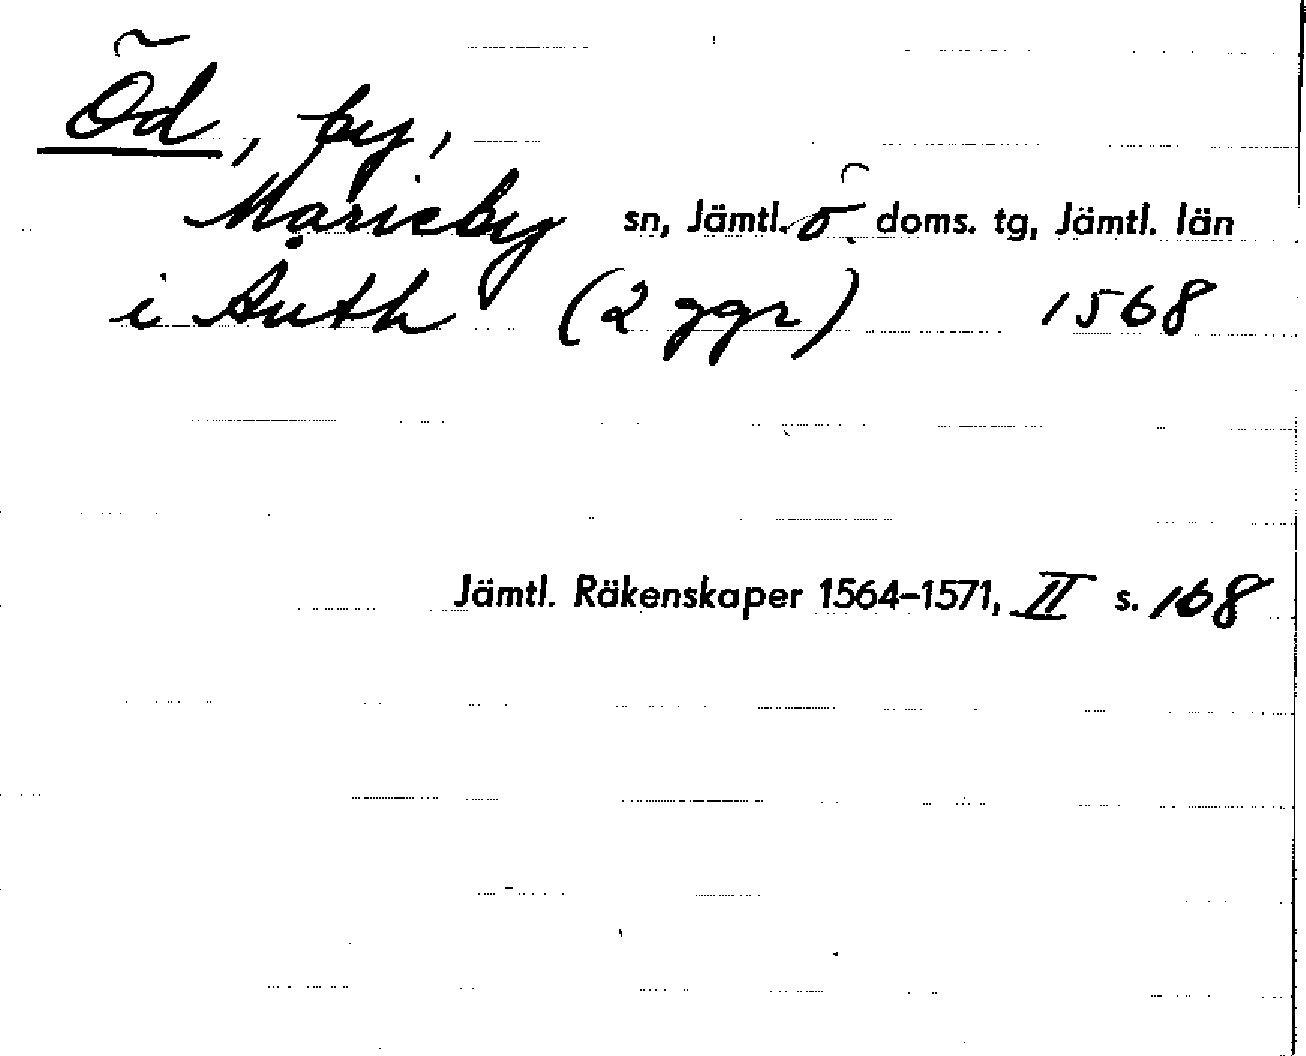 Öd, by,
Marieby sn, Jämtl. ö. doms. tg, Jämtl. län
i Auth (2 ggr) 1568
Jämtl. Räkenskaper 1564–1571, II s. 168